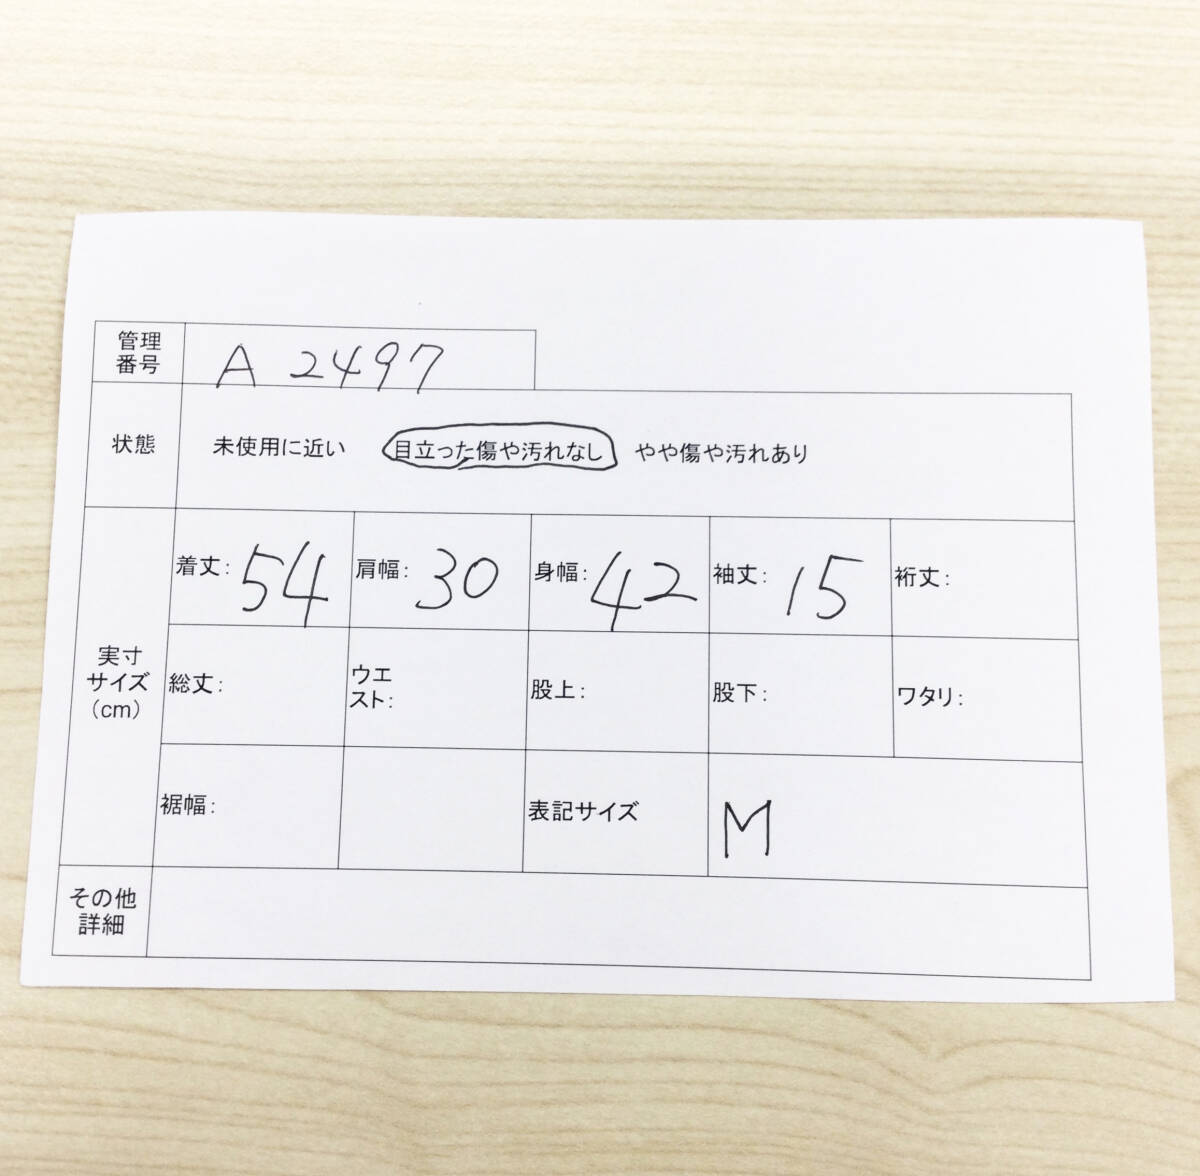 管理
番号
A 2497
状態
未使用に近い 目立った傷や汚れなし やや傷や汚れあり
実寸
サイズ
（cm）
着丈: 54 肩幅: 30 身幅: 42 袖丈: 15 裄丈:
総丈:
ウエ
スト:
股上: 股下: ワタリ:
裾幅: 表記サイズ M
その他
詳細